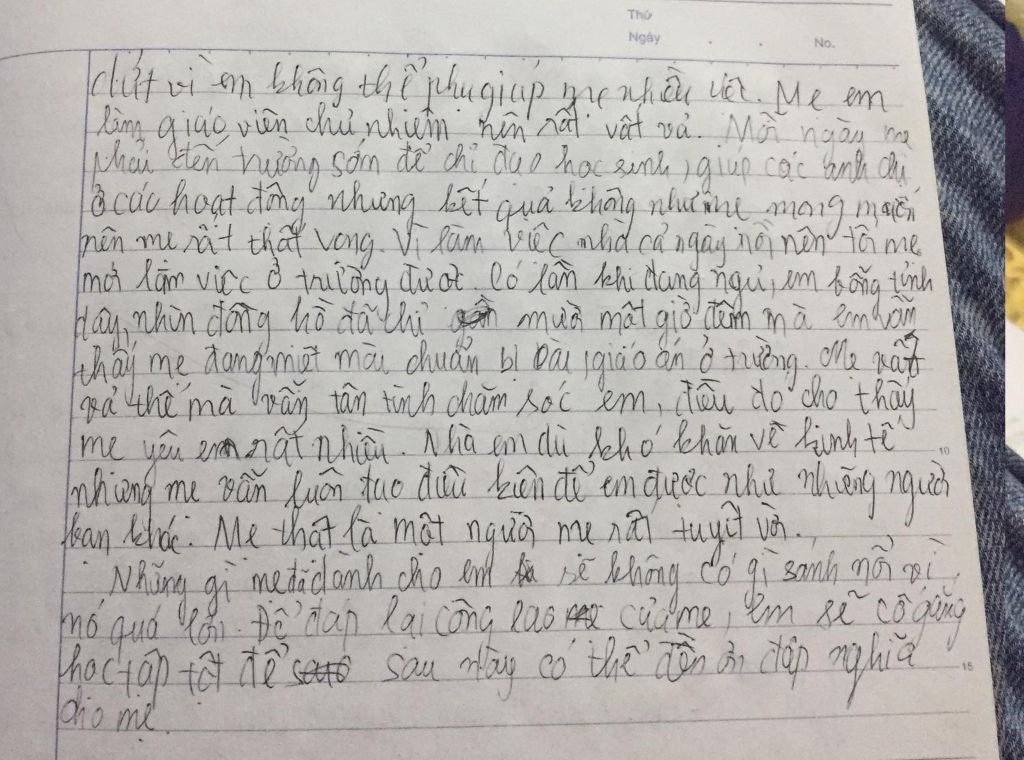 Thứ
Ngày . . No.
dứt vì em không thể phụ giúp mẹ nhiều việc. Mẹ em
làm giáo viên chủ nhiệm nên rất vất vả. Mỗi ngày mẹ
phải đến trường sớm để chỉ đạo học sinh, giúp các anh chị
ở các hoạt động nhưng kết quả không như mẹ mong muốn
nên mẹ rất thất vọng. Vì làm việc nhà cả ngày rồi nên tối mẹ
mới làm việc ở trường được. Có lần khi đang ngủ, em bỗng tỉnh
dậy, nhìn đồng hồ đã thì mười một giờ đêm mà em vẫn
thấy mẹ đang miệt mài chuẩn bị bài, giáo án ở trường. Mẹ vất
vả thế mà vẫn tận tình chăm sóc em, điều đó cho thấy
mẹ yêu em rất nhiều. Nhà em dù khó khăn về kinh tế
10
nhưng mẹ vẫn luôn tạo điều kiện để em được như những người
bạn khác. Mẹ thật là một người mẹ rất tuyệt vời.
Những gì mẹ đã dành cho em sẽ không có gì sánh nổi vì
nó quá lớn. Để đáp lại công lao của mẹ, em sẽ cố gắng
học tập tốt để sau này có thể đền ơn đáp nghĩa
15
cho mẹ.